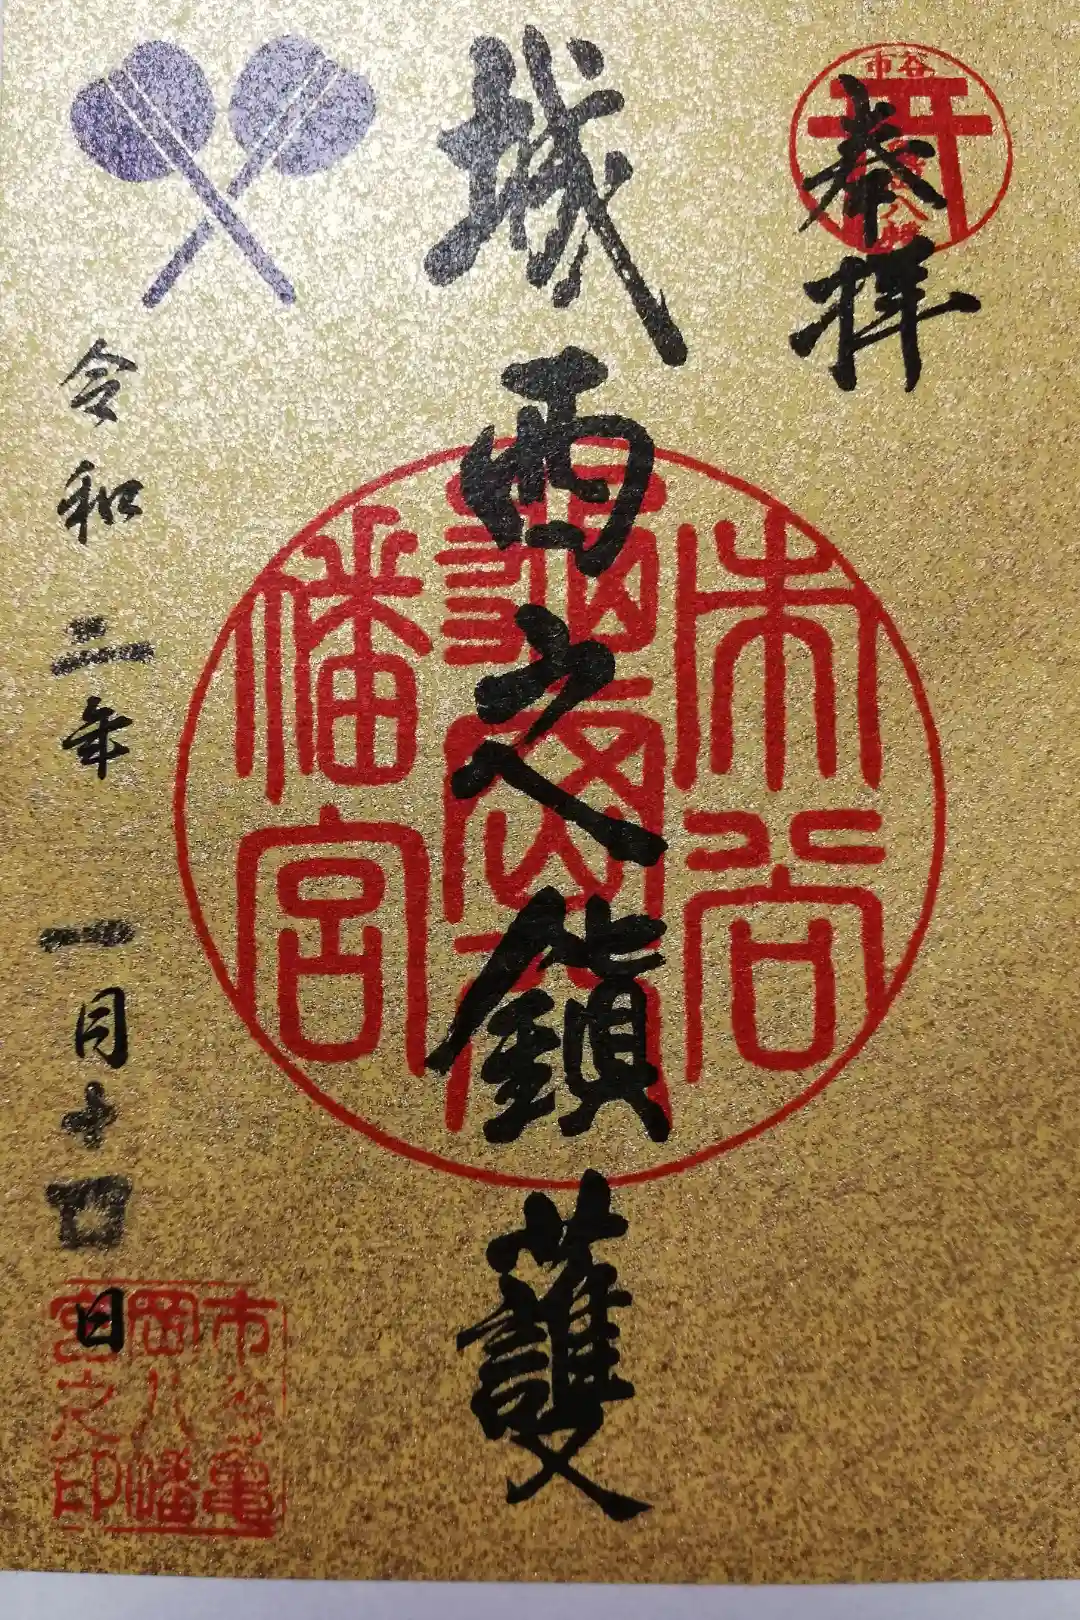 奉拝
市谷
八幡
城西之鎮護
市谷
亀岡八
幡宮
令和二年一月十四日
市谷亀
岡八幡
宮之印